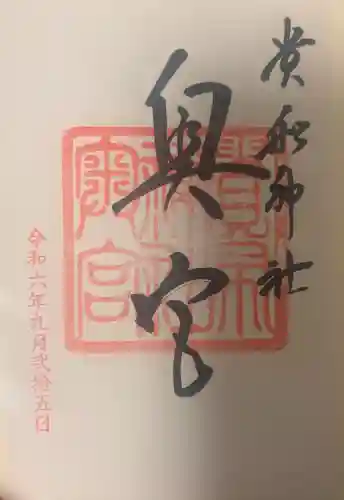 貴船神社
奥宮
貴船
神社
奥宮
令和六年九月弐拾五日